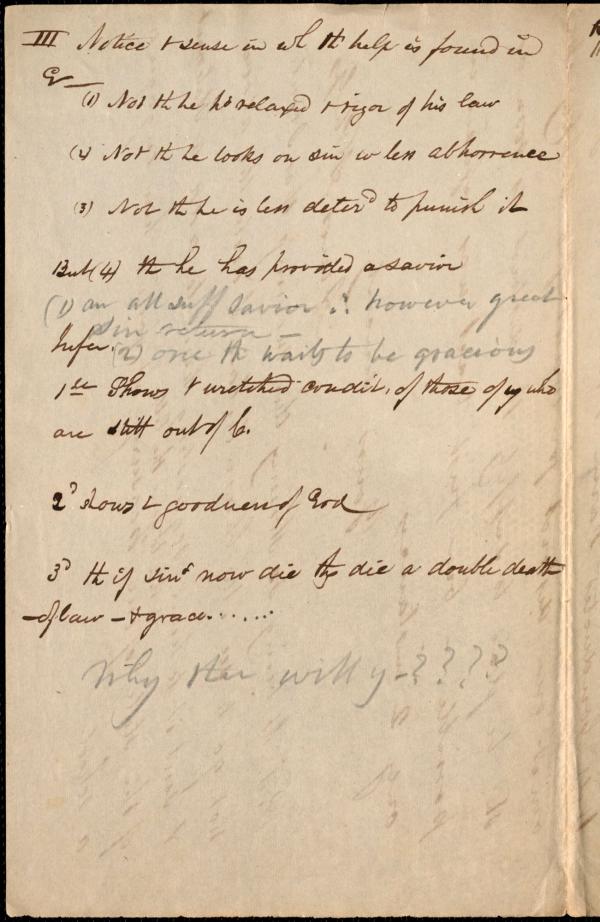 III Notice + sense in wh th help is found in
G—
(1) Not th he hs relaxed + rigor of his law
(2) Not th he looks on sin w less abhorrence
(3) Not th he is less deterd to punish it
But (4) th he has provided a savior
(1) an all suff savior ∴ however great
sin return —
Infer. (2) one th waits to be gracious
1st Shows + wretched condit. of those of y who
are still out of C.
2d shows + goodness of God
3d th if sinrs now die they die a double death
—of law — + grace......
Why then will y—????